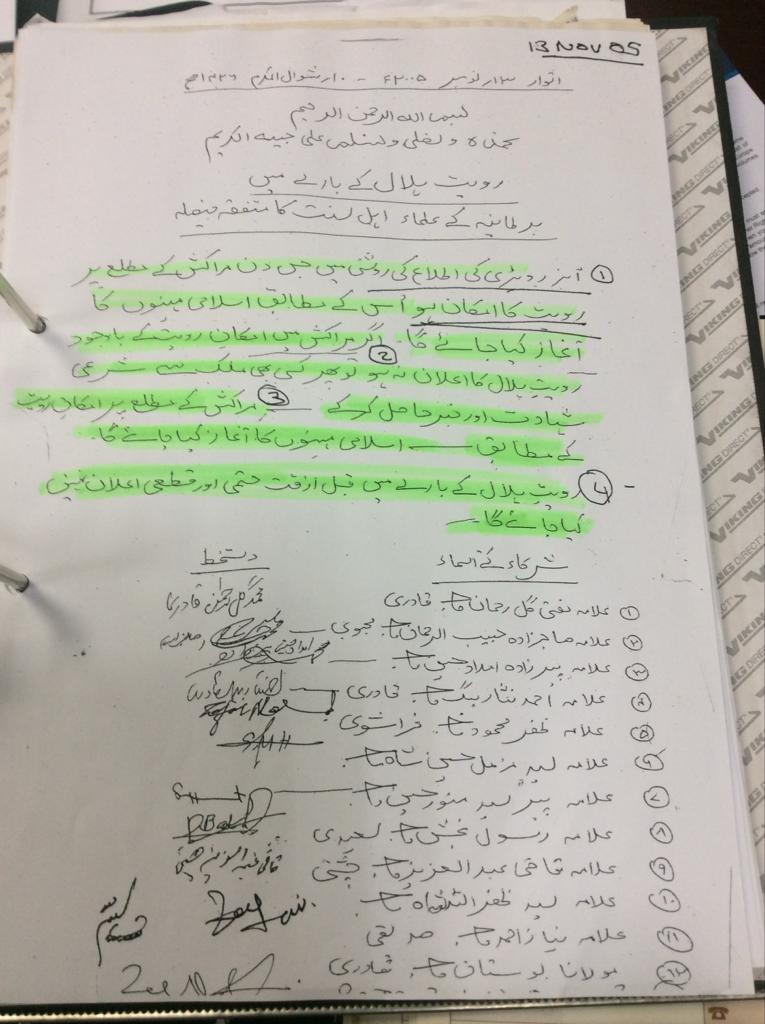 13 NOV 05
اتوار ۱۳ نومبر ۲۰۰۵ء - ۱۰ شوال المکرم ۱۴۲۶ھ
بسم اللہ الرحمن الرحیم
نحمدہ و نصلی و نسلم علی حبیبہ الکریم
رویت ہلال کے بارے میں
برطانیہ کے علماء اہل سنت کا متفقہ فیصلہ
① آبزرویٹری کی اطلاع کی روشنی میں جس دن مراکش کے مطلع پر
رویت کا امکان ہو اُس کے مطابق اسلامی مہینوں کا
آغاز کیا جائے گا۔ ② اگر مراکش میں امکان رویت کے باوجود
رویتِ ہلال کا اعلان نہ ہو تو پھر کسی بھی ملک سے شرعی
شہادت اور خبر حاصل کر کے — ③ مراکش کے مطلع پر امکانِ رویت
کے مطابق — اسلامی مہینوں کا آغاز کیا جائے گا۔
④ رویتِ ہلال کے بارے میں قبل از وقت حتمی اور قطعی اعلان نہیں
کیا جائے گا۔
شرکاء کے اسماء دستخط
① علامہ مفتی گل رحمان قادری
② علامہ صاحبزادہ حبیب الرحمان محبوبی
③ علامہ پیرزادہ امداد حسین
④ علامہ احمد نثار بیگ قادری
⑤ علامہ ظفر محمود فراشوی
⑥ علامہ سید مزمل حسین شاہ
⑦ علامہ پیر سید منور حسین
⑧ علامہ رسول بخش سعیدی
⑨ علامہ قاضی عبد العزیز چشتی
⑩ علامہ سید ظفر اللہ شاہ
⑪ علامہ نیاز احمد صدیقی
⑫ مولانا بوستان قادری
VIKING DIRECT